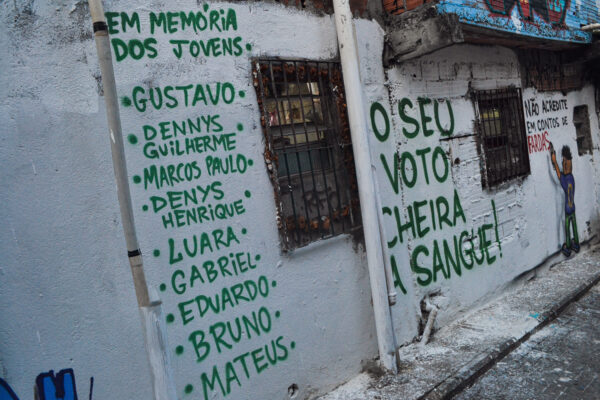 EM MEMÓRIA
DOS JOVENS.
•GUSTAVO•
•DENNYS
GUILHERME
•MARCOS PAULO•
•DENYS
HENRIQUE
•LUARA•
•GABRIEL•
•EDUARDO•
•BRUNO•
•MATEUS•
O SEU
VOTO
CHEIRA
A SANGUE!
NÃO ACREDITE
EM CONTOS DE
FARDAS